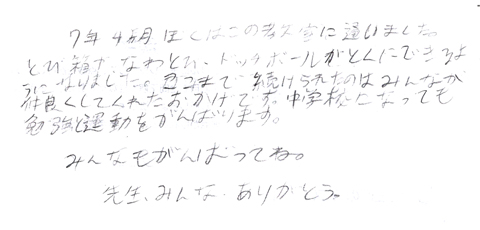 7年4ヶ月ぼくはこの教室に通いました。
とび箱や、なわとび、ドッチボールがとくにできるよ
うになりました。ここまで続けられたのはみんなが
仲良くしてくれたおかげです。中学校になっても
勉強と運動をがんばります。
みんなもがんばってね。
先生、みんな、ありがとう。